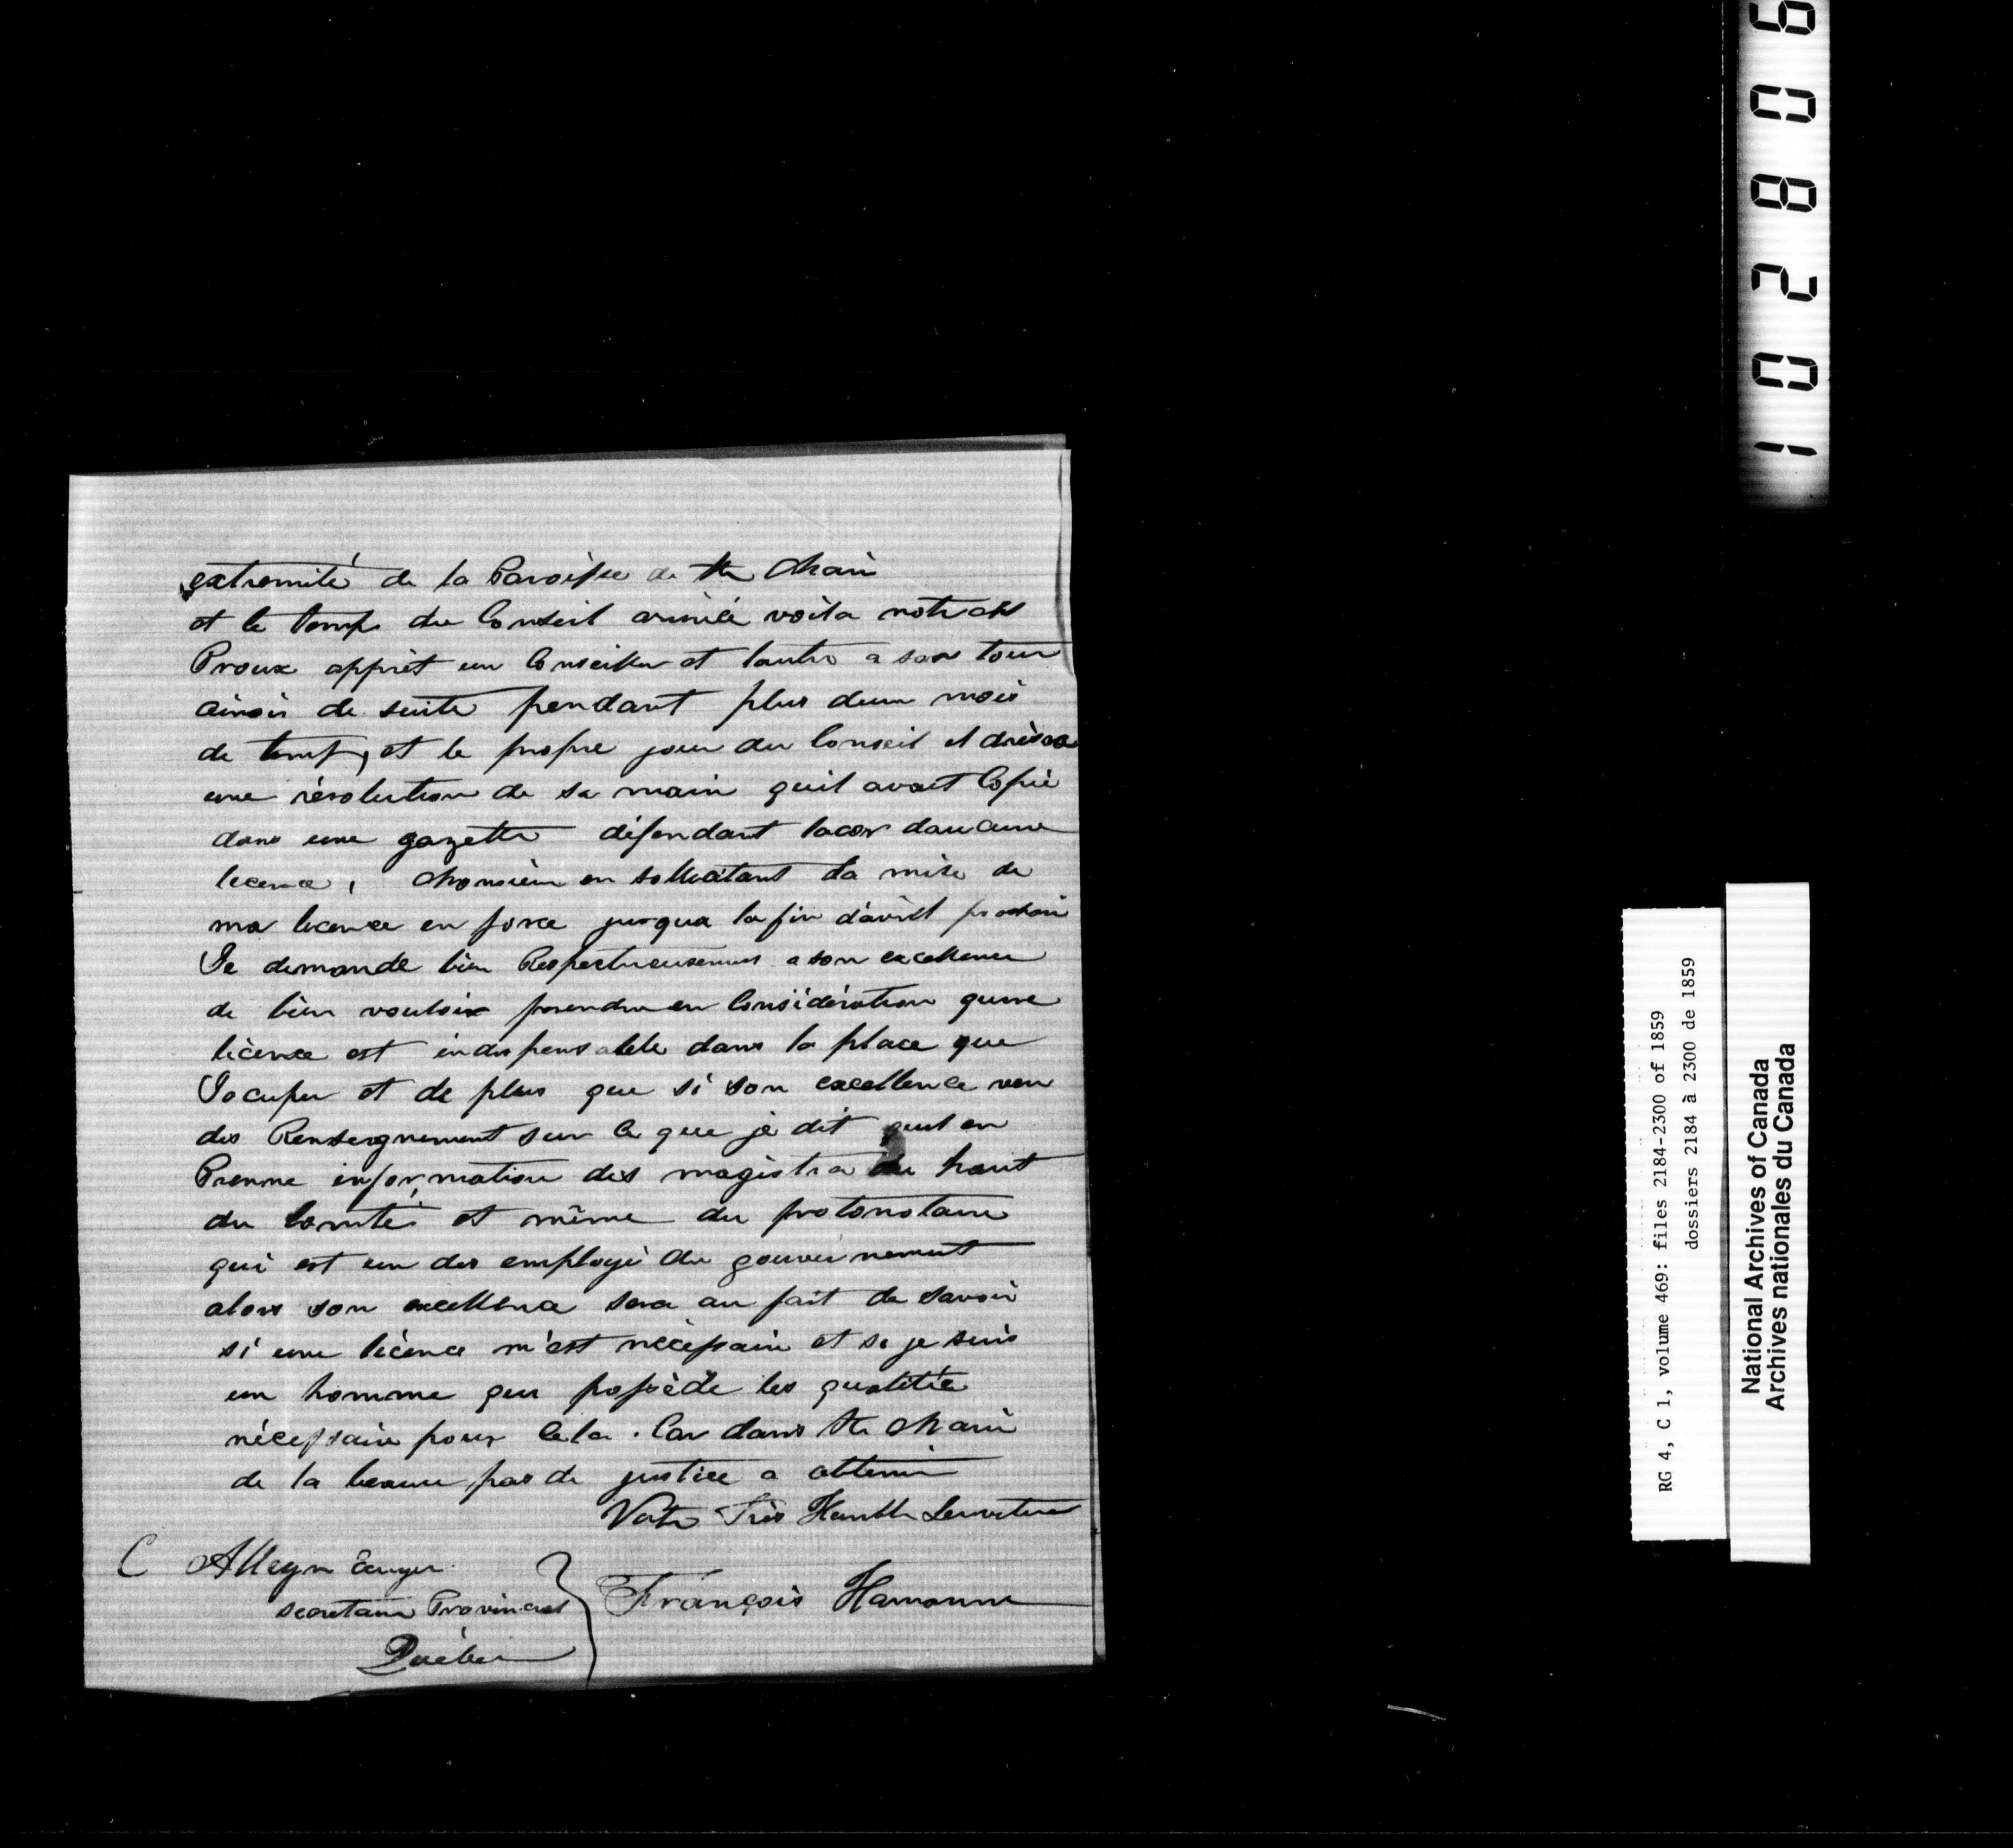 extremité de la Paroisse de Ste Marie
et le temp du Conseil arrivée voila
Proux apprèt un Conseiller et lautre a son tour
ainsi de suite pendant plus dun mois
de temp, et le propre jour du Conseil il drèssa
une résolution de sa main quil avait Copié
dans une gazette défendant lacor daucune
licence, Monsieur en sollicitant la mise de
ma licence en force jusqua la fin d'avril prochain
Je demande bien Respectueusement a son excellence
de bien vouloir prendre en Considération quune
licence est indispensable dans la place que
Jocupe et de plus que si son excellence veu
des Renseignement sur ce que jè dit quil en
Prenne information des magistra du haut
du Comté et même du protonotaire
qui est un des employé du gouvernement
alors son excellence sera au fait de savoir
si une licence m'est nécessaire et si je suis
un homme qui possède les qualitée
nécessaire pour cela. Car dans Ste Marie
de la beauce pas de justice a obtenir
Votre Très Humble Serviteur
C Alleyn Ecuyer
secretaire Provincial
Québec
François Hamonne
102806
RG 4, C 1, volume 469: files 2184-2300 of 1859
dossiers 2184 à 2300 de 1859
National Archives of Canada
Archives nationales du Canada